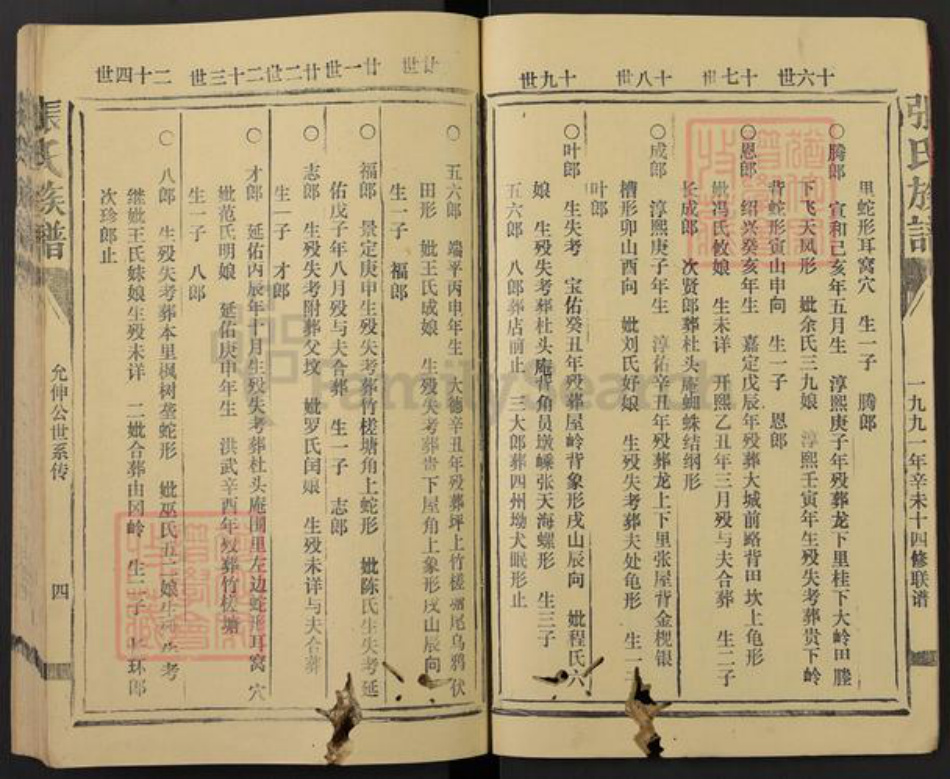 张氏族谱
一九九一年辛未十四修联谱
十六世
十七世
十八世
十九世
里蛇形耳窝穴 生一子 腾郎
○腾郎 宣和己亥年五月生 淳熙庚子年殁葬龙下里桂下大岭田塍
下飞天凤形 妣余氏三九娘 淳熙壬寅年生殁失考葬贵下岭
背蛇形寅山申向 生一子 恩郎
○恩郎 绍兴癸亥年生 嘉定戊辰年殁葬大城前路背田坎上龟形
妣冯氏攸娘 生未详 开熙乙丑年三月殁与夫合葬 生二子
长成郎 次贤郎葬杜头庵蜘蛛结纲形
○成郎 淳熙庚子年生 淳佑辛丑年殁葬龙上下里张屋背金枧银
槽形卯山酉向 妣刘氏好娘 生殁失考葬夫处龟形 生一子
叶郎
○叶郎 生失考 宝佑癸丑年殁葬屋岭背象形戌山辰向 妣程氏六
娘 生殁失考葬杜头庵背角员墩嵊张天海螺形 生三子
五六郎 八郎葬店前止 三大郎葬四州坳犬眠形止
廿世
廿一世
廿二世
二十三世
二十四世
○五六郎 端平丙申年生 大德辛丑年殁葬坪上竹槎窝尾乌鸦伏
田形 妣王氏成娘 生殁失考葬贵下屋角上象形戌山辰向
生一子 福郎
○福郎 景定庚申生殁失考葬竹槎塘角上蛇形 妣陈氏生失考延
佑戊子年八月殁与夫合葬 生一子 志郎
○志郎 生殁失考附葬父坟 妣罗氏闰娘 生殁未详与夫合葬
生一子 才郎
○才郎 延佑丙辰年十月生殁失考葬杜头庵围里左边蛇形耳窝穴
妣范氏明娘 延佑庚申年生 洪武辛酉年殁葬竹槎塘
生一子 八郎
○八郎 生殁失考葬本里枫树垄蛇形 妣巫氏五二娘生殁失考
继妣王氏妹娘生殁未详 二妣合葬由冈岭 生二子 长环郎
次珍郎止
张氏族谱
允伸公世系传
四
FamilySearch